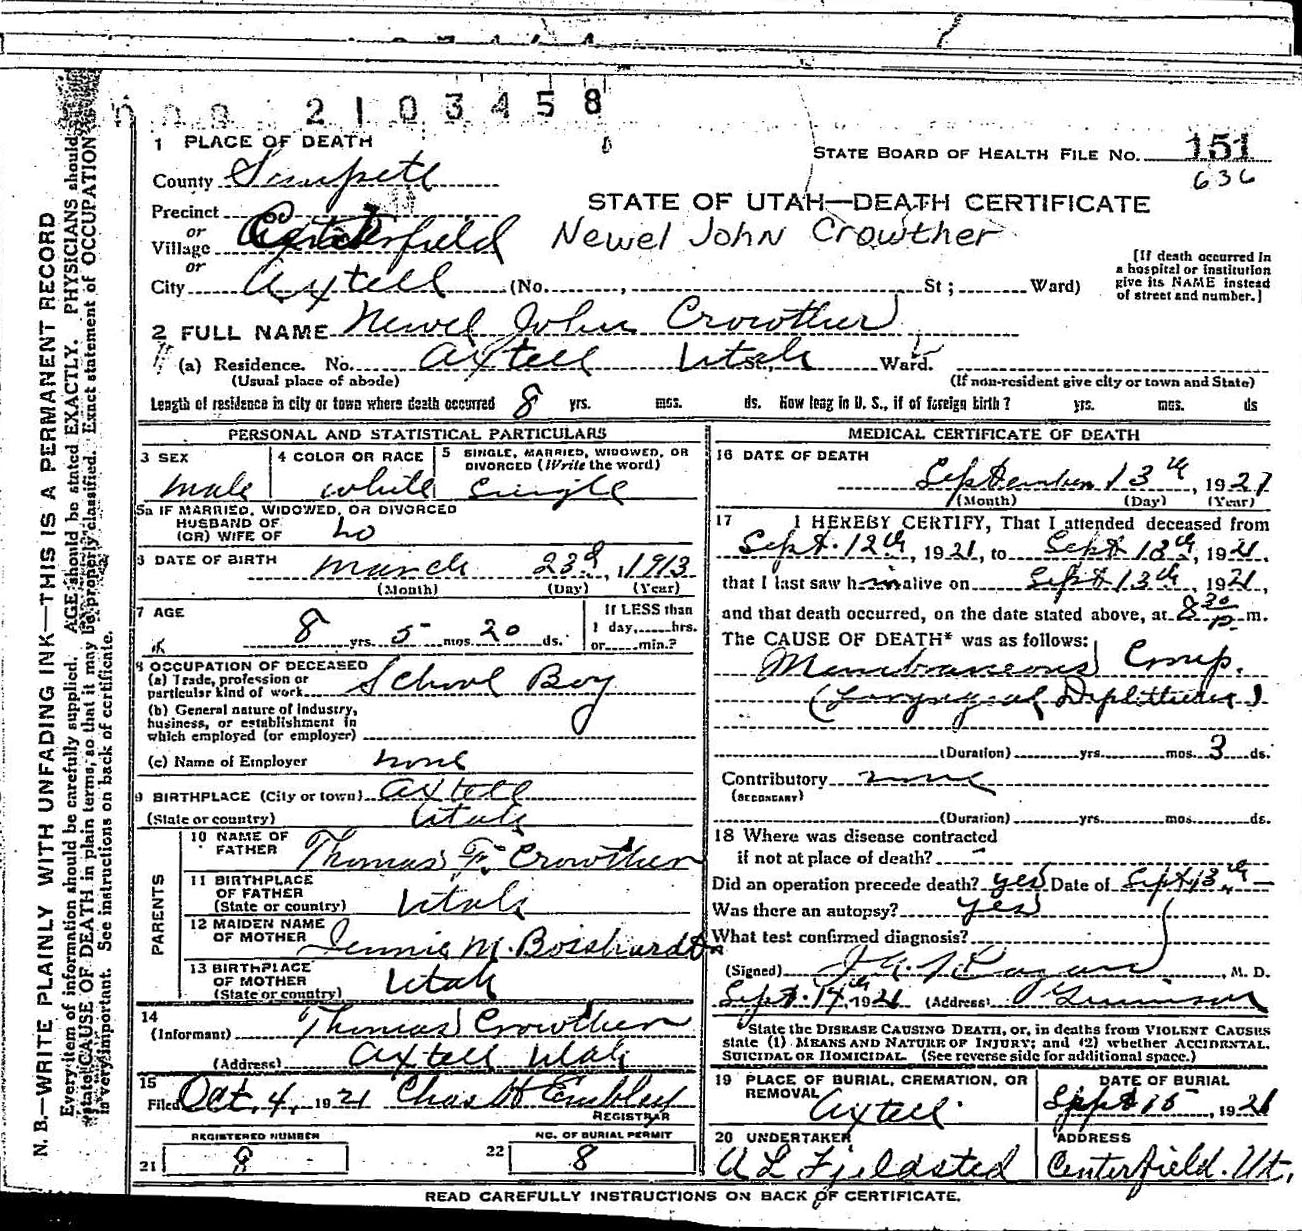 2103458
1 PLACE OF DEATH
STATE BOARD OF HEALTH FILE No. 151
636
County Sanpete
STATE OF UTAH—DEATH CERTIFICATE
Precinct
or
Village Centerfield
Newel John Crowther
or
City Axtell (No. , St ; Ward)
[If death occurred in a hospital or institution give its NAME instead of street and number.]
2 FULL NAME Newel John Crowther
(a) Residence. No. Axtell Utah St., Ward.
(Usual place of abode) (If non-resident give city or town and State)
Length of residence in city or town where death occurred 8 yrs. mos. ds. How long in U. S., if of foreign birth? yrs. mos. ds
PERSONAL AND STATISTICAL PARTICULARS
3 SEX
male
4 COLOR OR RACE
white
5 SINGLE, MARRIED, WIDOWED, OR DIVORCED (Write the word)
Single
5a IF MARRIED, WIDOWED, OR DIVORCED
HUSBAND OF
(OR) WIFE OF no
6 DATE OF BIRTH March 23d, 1913
(Month) (Day) (Year)
7 AGE
8 yrs. 5 mos. 20 ds.
If LESS than
1 day, hrs.
or min.?
8 OCCUPATION OF DECEASED
(a) Trade, profession or
particular kind of work School Boy
(b) General nature of industry,
business, or establishment in
which employed (or employer)
(c) Name of Employer none
9 BIRTHPLACE (City or town) Axtell
(State or country) Utah
PARENTS
10 NAME OF
FATHER Thomas F. Crowther
11 BIRTHPLACE
OF FATHER
(State or country) Utah
12 MAIDEN NAME
OF MOTHER Jennie M. Bosshardt
13 BIRTHPLACE
OF MOTHER
(State or country) Utah
14
(Informant) Thomas Crowther
(Address) Axtell Utah
15
Filed Oct. 4, 1921 Chas H Embley
REGISTRAR
REGISTERED NUMBER
21 8
NO. OF BURIAL PERMIT
22 8
MEDICAL CERTIFICATE OF DEATH
16 DATE OF DEATH
September 13th, 1921
(Month) (Day) (Year)
17 I HEREBY CERTIFY, That I attended deceased from
Sept. 12th, 1921, to Sept 13th, 1921,
that I last saw him alive on Sept 13th, 1921,
and that death occurred, on the date stated above, at 8 30 p m.
The CAUSE OF DEATH* was as follows:
Membraneous Croup.
(Laryngeal Diphtheria)
(Duration) yrs. mos. 3 ds.
Contributory none
(SECONDARY)
(Duration) yrs. mos. ds.
18 Where was disease contracted
if not at place of death? -
Did an operation precede death? yes Date of Sept 13th
Was there an autopsy? yes
What test confirmed diagnosis?
(Signed) , M. D.
Sept. 14th, 1921 (Address) Gunnison
*State the DISEASE CAUSING DEATH, or, in deaths from VIOLENT CAUSES
state (1) MEANS AND NATURE OF INJURY; and (2) whether ACCIDENTAL,
SUICIDAL or HOMICIDAL. (See reverse side for additional space.)
19 PLACE OF BURIAL, CREMATION, OR
REMOVAL Axtell.
DATE OF BURIAL
Sept 15, 1921
20 UNDERTAKER
A L Fjeldsted
ADDRESS
Centerfield. Ut.
READ CAREFULLY INSTRUCTIONS ON BACK OF CERTIFICATE.
N. B.—WRITE PLAINLY WITH UNFADING INK—THIS IS A PERMANENT RECORD
Every item of information should be carefully supplied. AGE should be stated EXACTLY. PHYSICIANS should
state CAUSE OF DEATH in plain terms, so that it may be properly classified. Exact statement of OCCUPATION
is very important. See instructions on back of certificate.